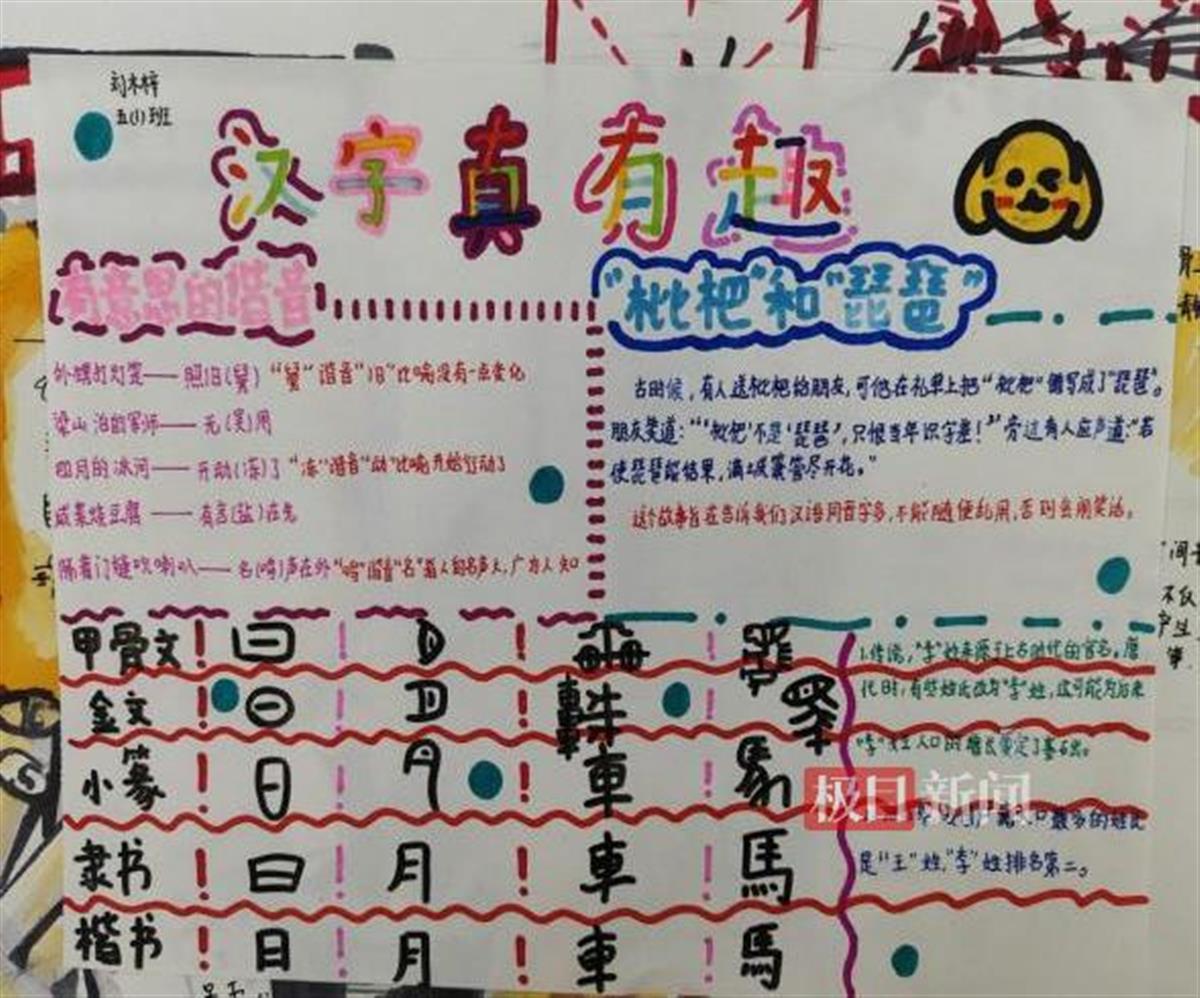 刘木梓
五(1)班
汉字真有趣
有意思的谐音
外甥打灯笼——照旧(舅) “舅”谐音“旧”比喻没有一点变化
梁山泊的军师——无(吴)用
四月的冰河——开动(冻)了 “冻”谐音“动”比喻开始行动了
咸菜烧豆腐——有言(盐)在先
隔着门缝吹喇叭——名(鸣)声在外 “鸣”谐音“名”指人的名声大,广为人知
“枇杷”和“琵琶”
古时候,有人送枇杷给朋友,可他在礼单上把“枇杷”错写成了“琵琶”。
朋友笑道:“‘枇杷’不是‘琵琶’,只恨当年识字差!”旁边有人应声道:“若
使琵琶能结果,满城箫管尽开花。”
这个故事旨在告诉我们汉语同音字多,不能随便乱用,否则会闹笑话。
甲骨文
金文
小篆 日 月 車 馬
隶书 日 月 車 馬
楷书 日 月 車 馬
1.传说,“李”姓来源于上古时代的官名。唐
代时,有些姓氏改为“李”姓,这可能为后来
“李”姓人口的增长奠定了基础。
极目新闻
最多的姓氏
是“王”姓,“李”姓排名第二。